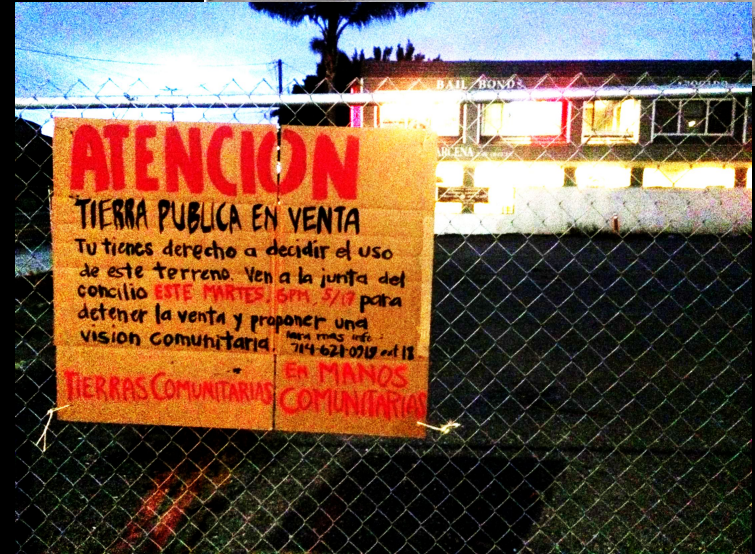 BAIL BONDS
ATENCION
TIERRA PUBLICA EN VENTA
Tu tienes derecho a decidir el uso
de este terreno. Ven a la junta del
concilio ESTE MARTES, 6PM, 5/17 para
detener la venta y proponer una
vision comunitaria.
para mas info
714-621-0919 ext 18
TIERRAS COMUNITARIAS
EN MANOS
COMUNITARIAS